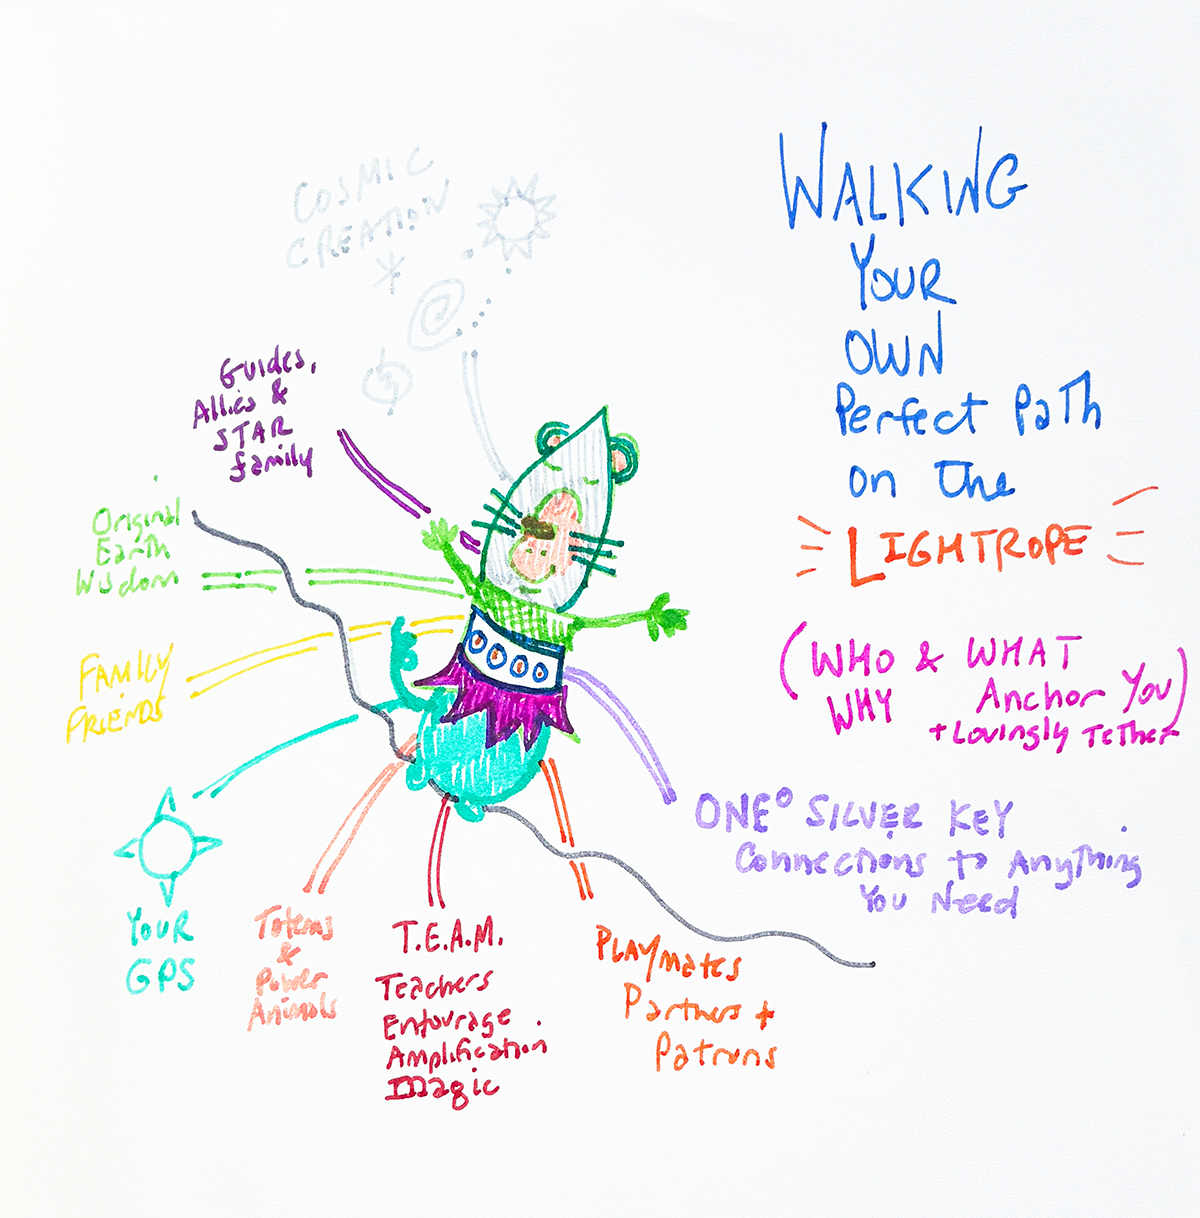 WALKING
YOUR
OWN
Perfect Path
on The
LIGHTROPE
(WHO & WHAT
WHY Anchor You)
+ Lovingly Tether
COSMIC
CREATION
Guides,
Allies &
STAR
family
Original
Earth
Wisdom
FAMILY
FRIENDS
YOUR
GPS
Totems
&
Power
Animals
T.E.A.M.
Teachers
Entourage
Amplification
Magic
PLAYmates
Partners +
Patrons
ONE° SILVER KEY
Connections to Anything
You Need